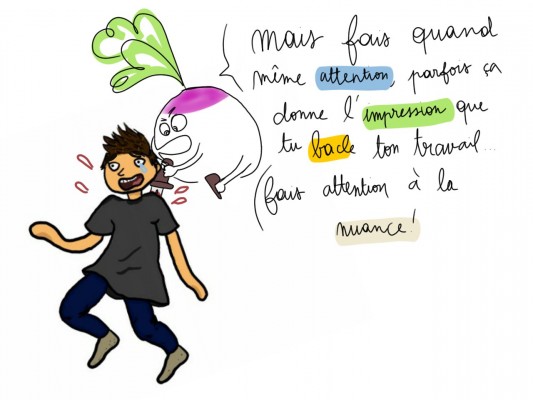 mais fais quand
même attention, parfois ça
donne l'impression que
tu bacle ton travail...
(fais attention à la
nuance!